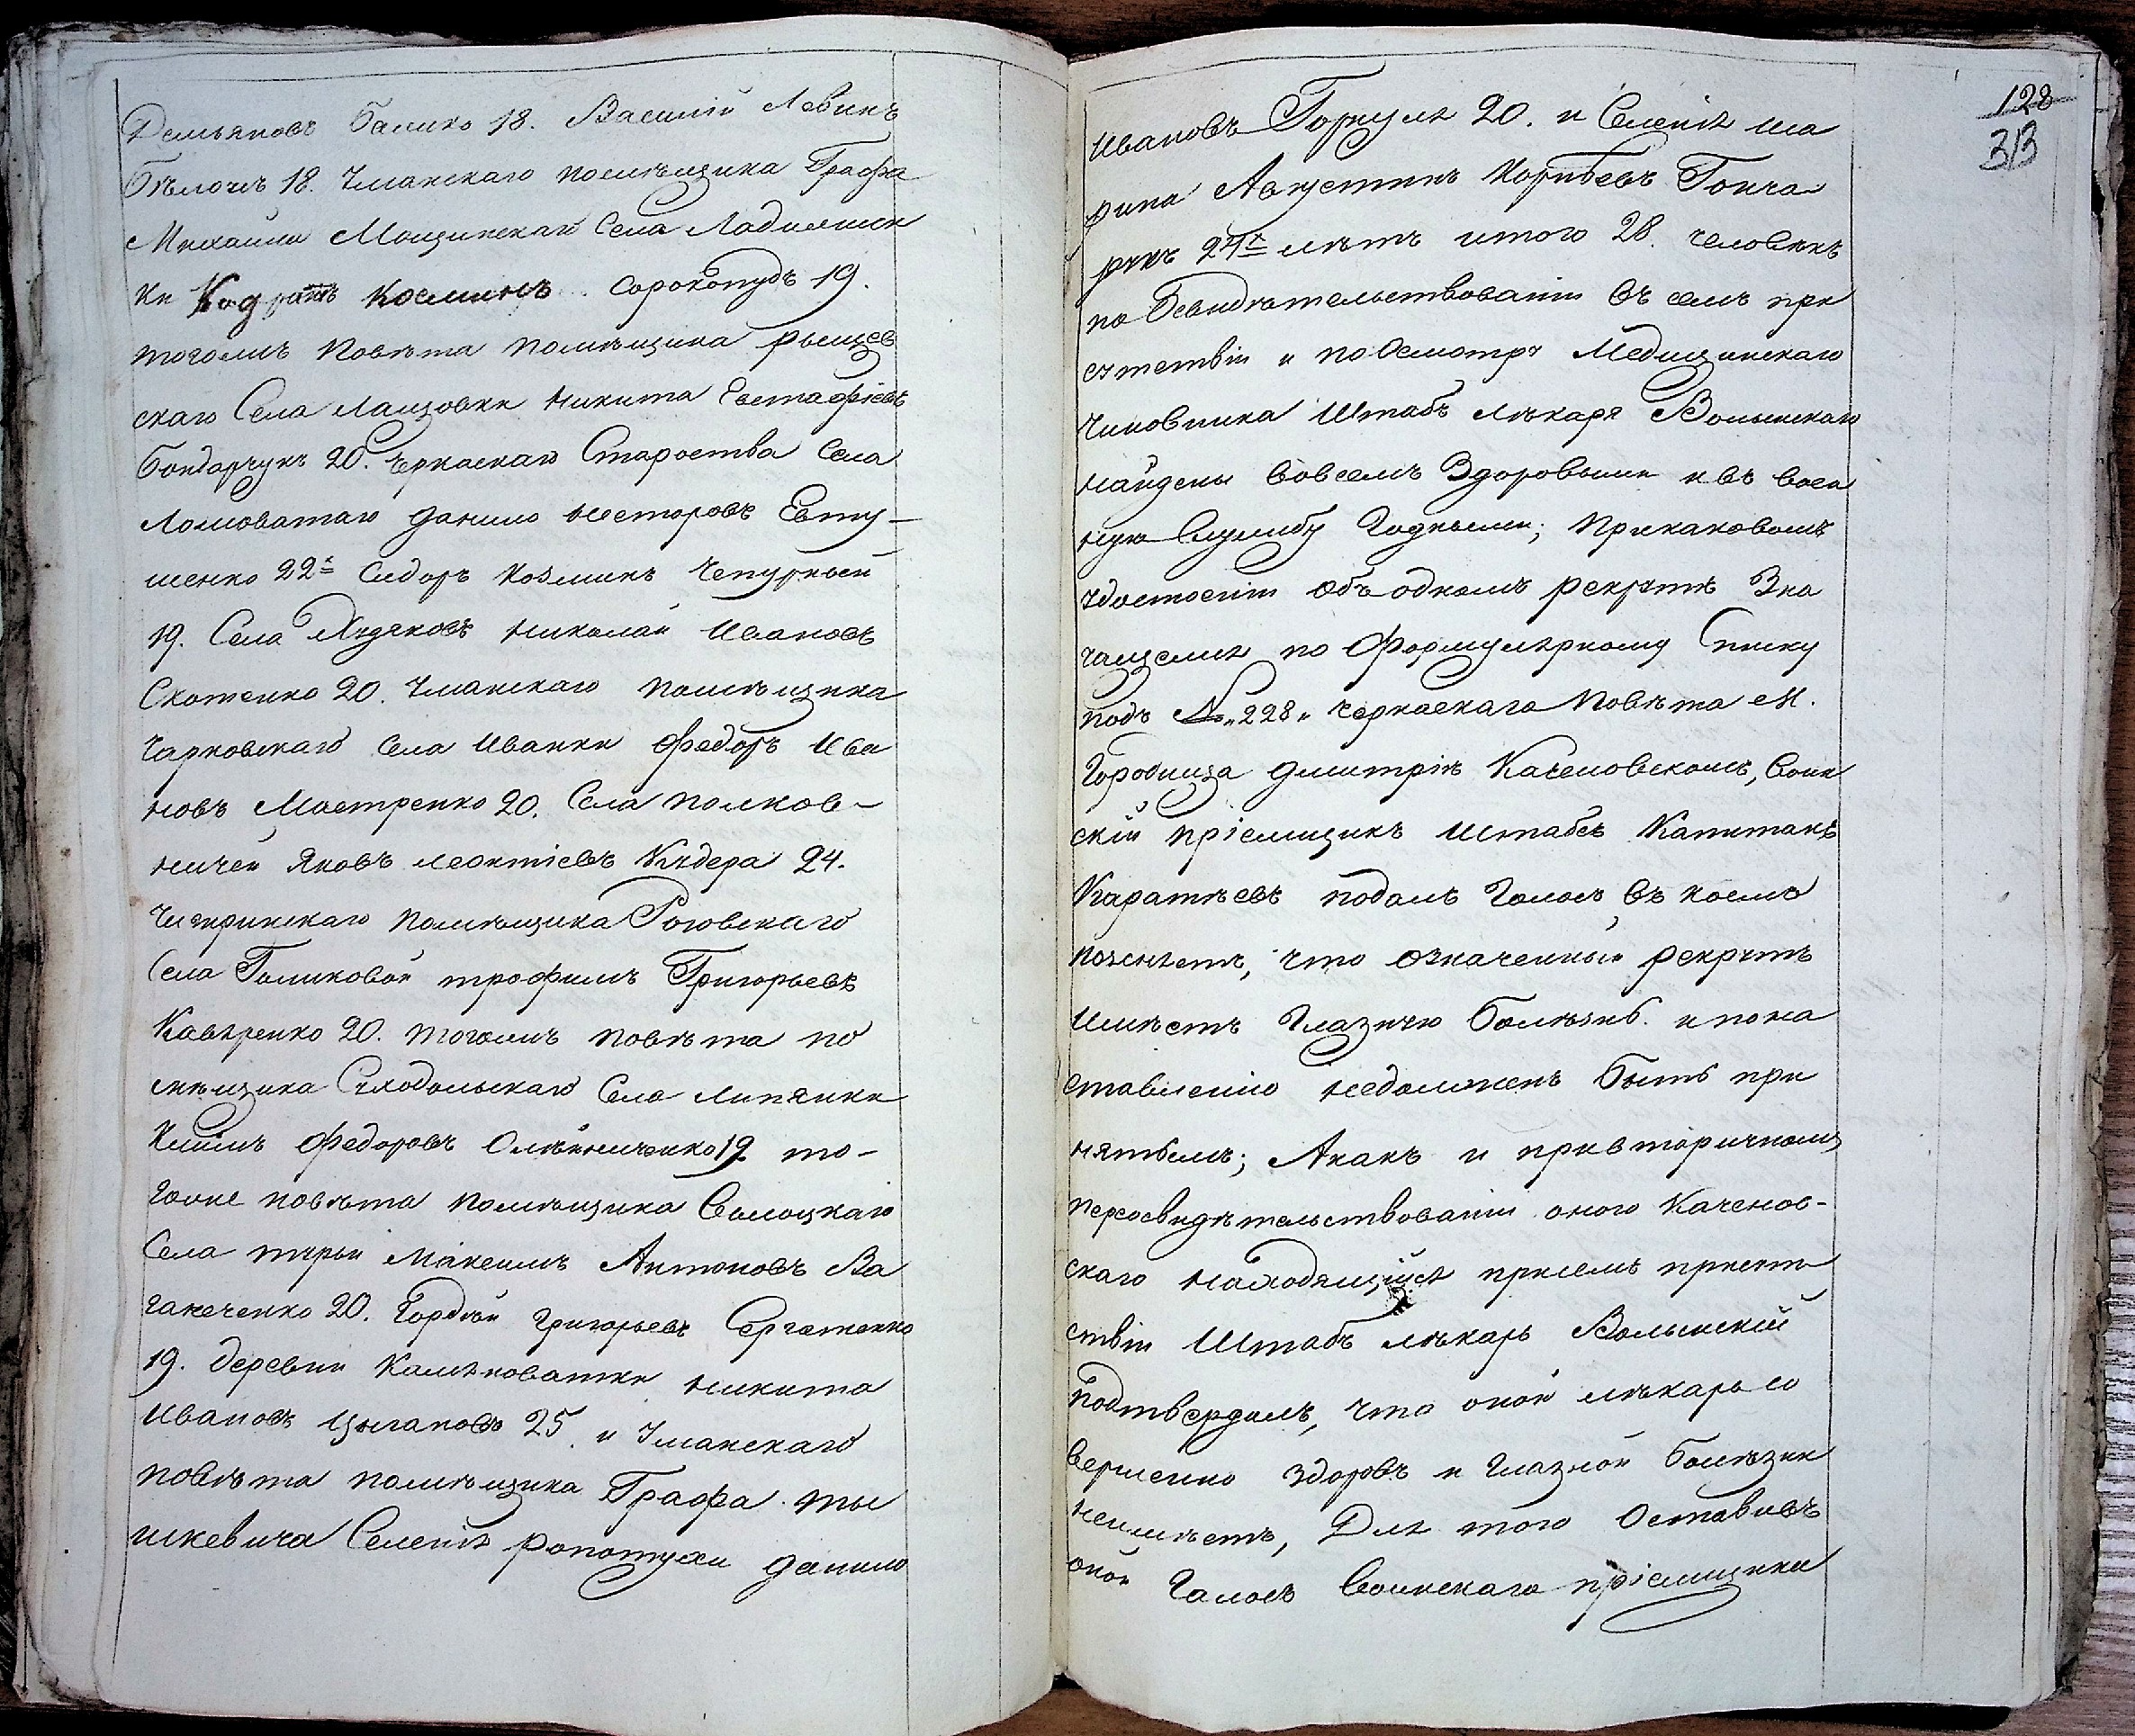 Демьяновъ Балико 18. Василій Левинъ
Бѣлочъ 18. Уманскаго помѣщика Графа
Михаила Мощинскаго Села Ладыжинс
ки Кодратъ Косминъ Сорокопудъ 19.
тогожъ повѣта помѣщика рыщев
скаго Села Лащовки Никита Евстафіевъ
Бондарчукъ 20. Черкаскаго Староства Села
Ломоватаго Данило Несторовъ Евту-
шенко 22х Сидоръ Козминъ Чепурный
19. Села Худяковъ Николай Ивановъ
Скотенко 20. Уманскаго помѣщика
Чарковскаго Села Иванки Федоръ Ива
новъ Мостренко 20. Села полков-
ничей Яковъ Леонтіевъ Кудера 24.
Чигиринскаго помѣщика Роговскаго
Села Голиковой трофимъ Григорьевъ
Кавѣренко 20. тогожъ повѣта по
мѣщика Суходольскаго Села Липянки
Климъ Федоровъ Олѣйниченко 19 то-
гоже повѣта помѣщика
Села турьи Максимъ Антоновъ Ва
20. Гордѣй Григорьевъ
19. деревни Камяноватки Никита
Ивановъ Цыгановъ 25 и Уманскаго
повѣта помѣщика Графа ты
шкевича Селенія ропотухи Данило
Ивановъ 20. и Селенія ша
рина Августинъ Корнѣевъ Гонча
рукъ 24х лѣтъ итого 28. человѣкъ
по Освидѣтельствованіи въ семъ при
сутствіи и по Осмотру Медицинскаго
Чиновника Штабъ лѣкаря Волынскаго
найдены вовсемъ Здоровыми и въ воен
ную Службу Годными; прикаковомъ
удостоеніи Объ одномъ рекрутѣ Зна
чащемся по Формулярному Списку
подъ №„228„ Черкаскаго повѣта М.
Городища Дмитріѣ Каченовскомъ, Воин
скій пріемщикъ Штабсъ Капитанъ
Каратѣевъ подалъ Голосъ въ коемъ
пояснѧетъ, что означенный рекрутъ
имѣетъ Глазную болѣзнь и пона
ставленію недолженъ быть при
нятымъ; Акакъ и привторичномъ
переосвидѣтельствованіи онаго Каченов-
скаго находящійся присемъ присут
ствіи Штабъ лѣкарь Волынскій
подтвердилъ, что оной лѣкарь со
вершенно здоровъ и Глазной болѣзни
неимѣетъ, Для того Оставивъ
оной Голосъ Воинскаго пріемщика
128
313